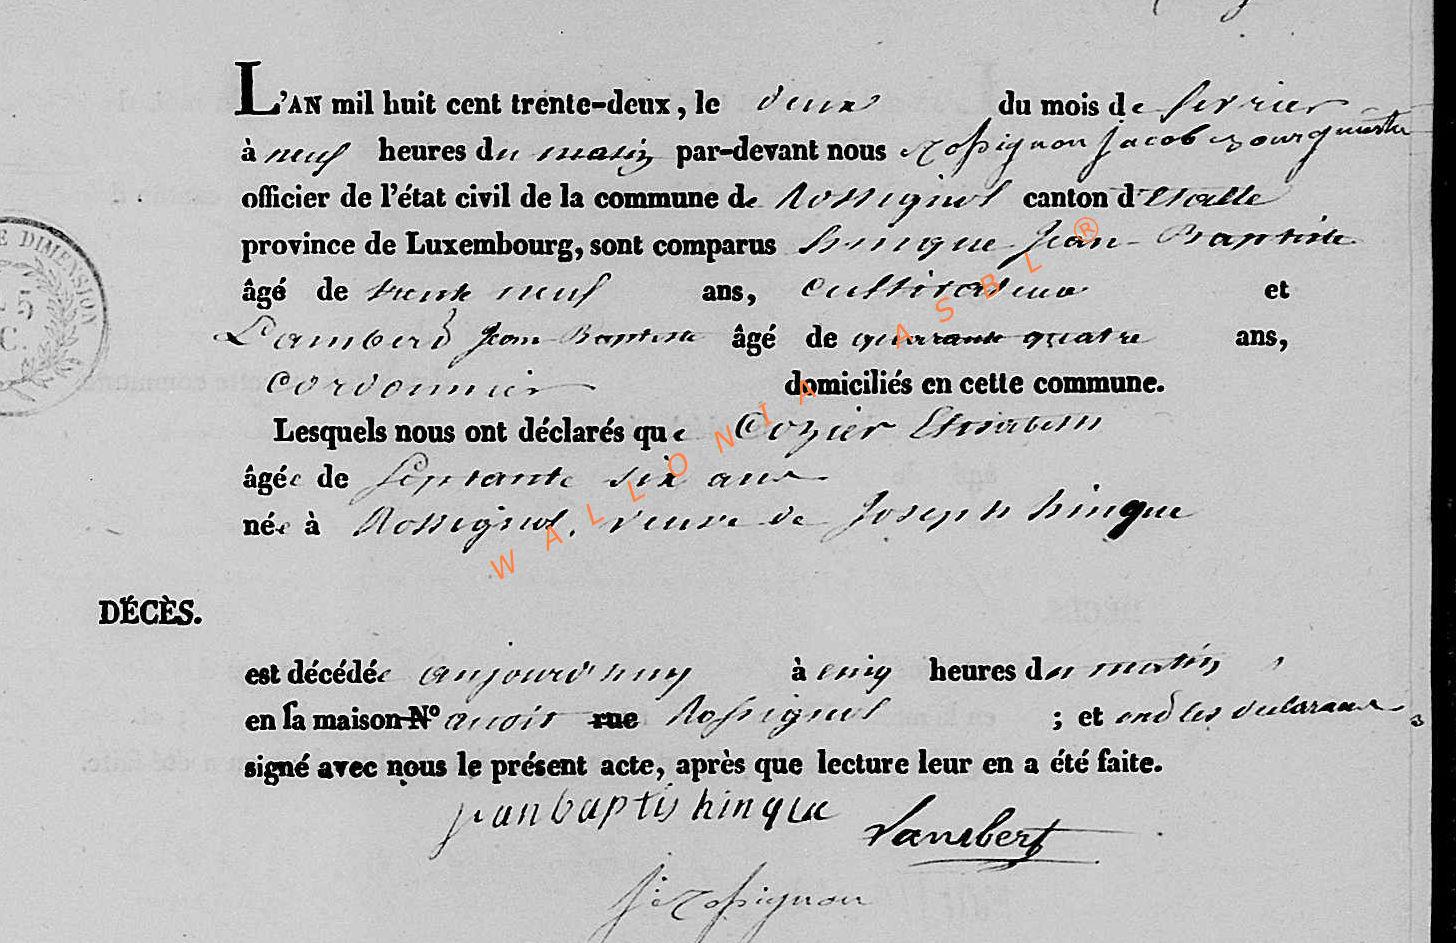 L'AN mil huit cent trente-deux, le deux du mois de fevrier
à neuf heures du matin par-devant nous Rossignon Jacob Bourguemestre
officier de l'état civil de la commune de Rossignol canton d'Etalle
province de Luxembourg, sont comparus hinque Jean Baptiste
âgé de trente neuf ans, cultivateur et
Lambert Jean Baptiste âgé de quarante quatre ans,
Cordonnier domiciliés en cette commune.
Lesquels nous ont déclarés que Cozier Elisabeth
âgée de Septante six ans
née à Rossignol, veuve de Joseph hinque
DÉCÈS.
est décédée aujourd'huy à cinq heures du matin,
en sa maison N° audit rue Rossignol ; et ont les declarans
signé avec nous le présent acte, après que lecture leur en a été faite.
jeanbaptis hinque Lambert
J: Rossignon
E DIMENSION
5
C.
WALLONIA ASBL ®